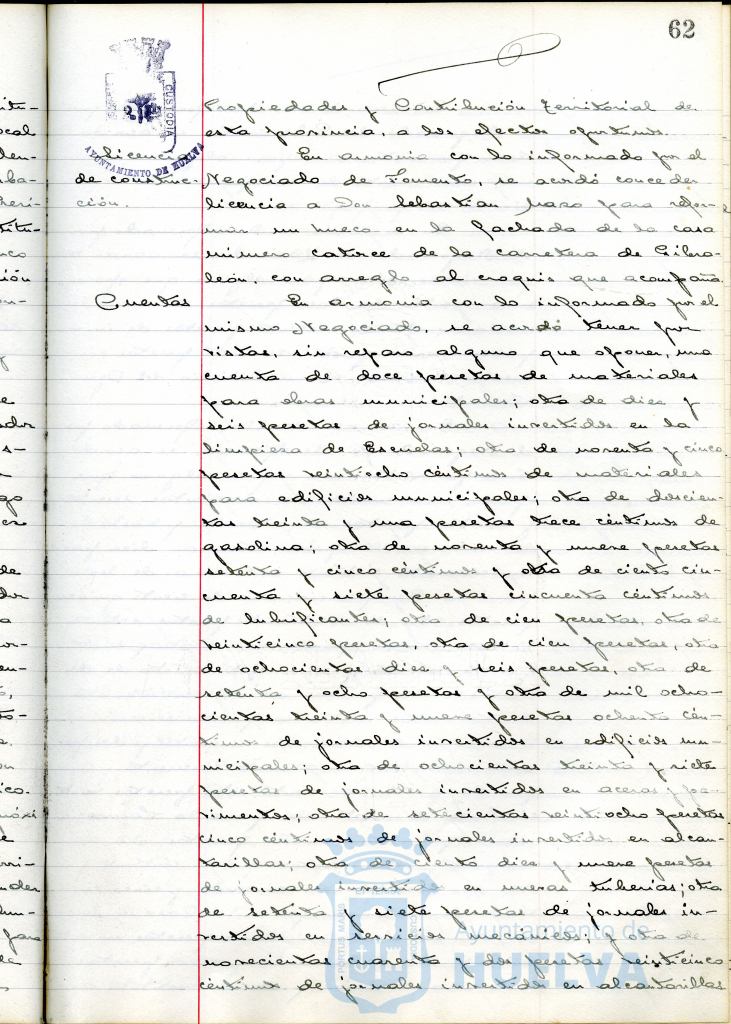 62
PORTUS MARIS
CUSTODIA
AYUNTAMIENTO DE HUELVA
Propiedades y Contribución Territorial de
esta provincia, a los efectos oportunos.
Licencia
de construc-
ción.
En armonia con lo informado por el
Negociado de Fomento, se acordó conceder
licencia a Don Sebastian para refor-
mar un hueco en la fachada de la casa
número catorce de la carretera de Gibra-
león, con arreglo al croquis que acompaña.
Cuentas
En armonia con lo informado por el
mismo Negociado, se acordó tener por
vistas, sin reparo alguno que oponer, una
cuenta de doce pesetas de materiales
para obras municipales; otra de diez y
seis pesetas de jornales invertidos en la
limpieza de Escuelas; otra de noventa y cinco
pesetas veintiocho céntimos de materiales
para edificios municipales; otra de doscien-
tas treinta y una pesetas trece céntimos de
gasolina; otra de noventa y nueve pesetas
setenta y cinco céntimos y otra de ciento cin-
cuenta y siete pesetas cincuenta céntimos
de lubrificantes; otra de cien pesetas, otra de
veinticinco pesetas, otra de cien pesetas, otra
de ochocientas diez y seis pesetas, otra de
setenta y ocho pesetas y otra de mil ocho-
cientas treinta y nueve pesetas ochenta cén-
timos de jornales invertidos en edificios mu-
nicipales; otra de ochocientas treinta y siete
pesetas de jornales invertidos en aceras y pa-
vimentos; otra de setecientas veintiocho pesetas
cinco céntimos de jornales invertidos en alcan-
tarillas; otra de ciento diez y nueve pesetas
de jornales invertidos en nuevas tuberías; otra
de setenta y siete pesetas de jornales in-
vertidos en servicios mecánicos; y otra de
novecientas cuarenta y dos pesetas veinticinco
céntimos de jornales invertidos en alcantarillas
Ayuntamiento de
HUELVA